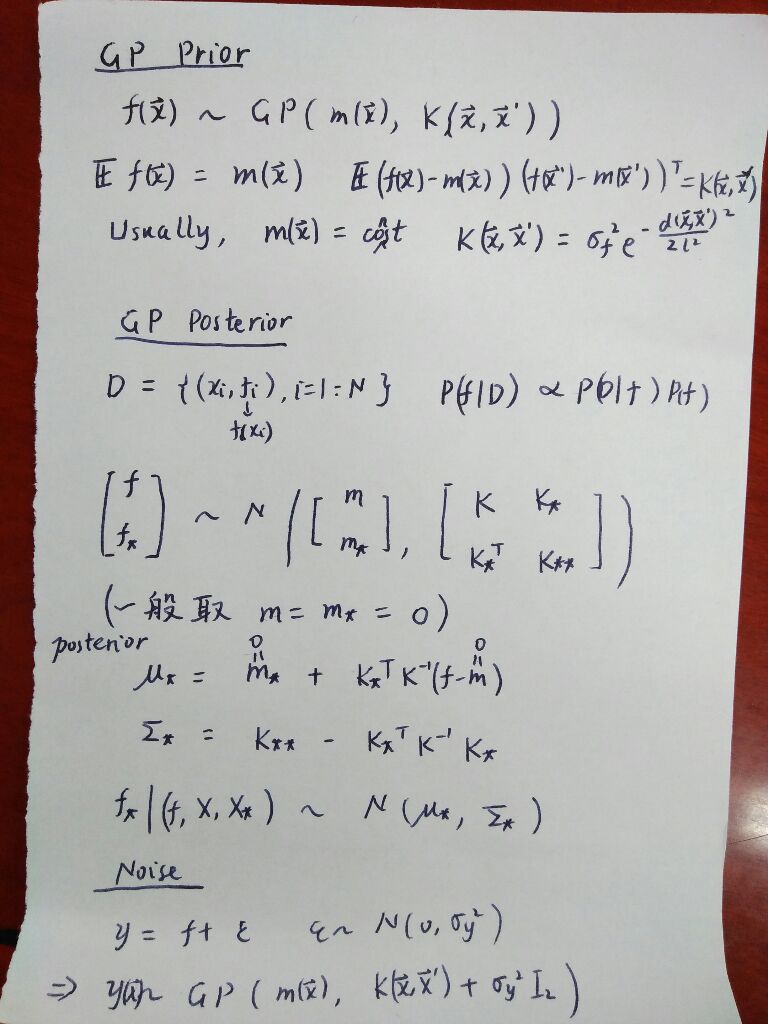 GP Prior
f(x⃗) ~ GP( m(x⃗), K(x⃗, x⃗') )
𝔼 f(x⃗) = m(x⃗)   𝔼 (f(x⃗) - m(x⃗)) (f(x⃗') - m(x⃗'))ᵀ = K(x⃗, x⃗')
Usually, m(x⃗) = const   K(x⃗, x⃗') = σ_f² e^{- d(x⃗,x⃗')² / 2l²}
GP Posterior
D = {(xi, fi), i=1:N}   P(f|D) ∝ P(D|f) P(f)
↓
f(xi)
[f f*] ~ N ( [m m*], [K K* K*ᵀ K**] )
(一般取 m = m* = 0)
posterior
μ* = m* (=0) + K*ᵀ K⁻¹ (f - m (=0))
Σ* = K** - K*ᵀ K⁻¹ K*
f* | (f, X, X*) ~ N (μ*, Σ*)
Noise
y = f + ε   ε ~ N(0, σy²)
⇒ y(x⃗) ~ GP ( m(x⃗), K(x⃗, x⃗') + σy² I₂ )